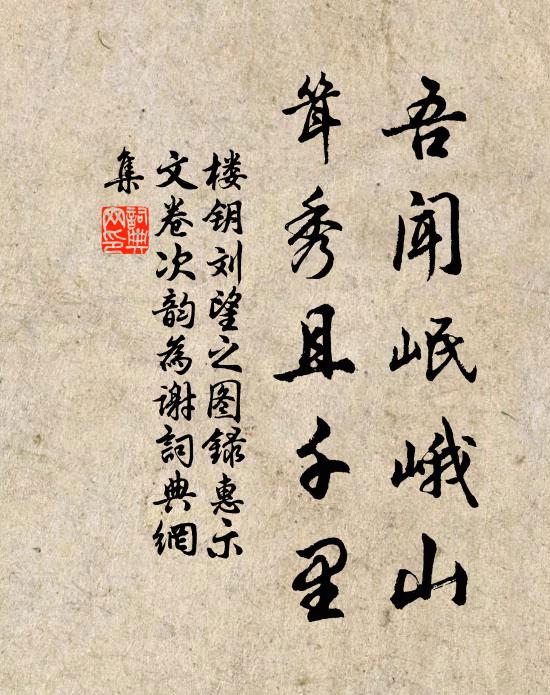 吾闻岷峨山
耸秀且千里
楼钥刘望之图録惠示
文卷次韵為谢詞典網
集
詞典
网印